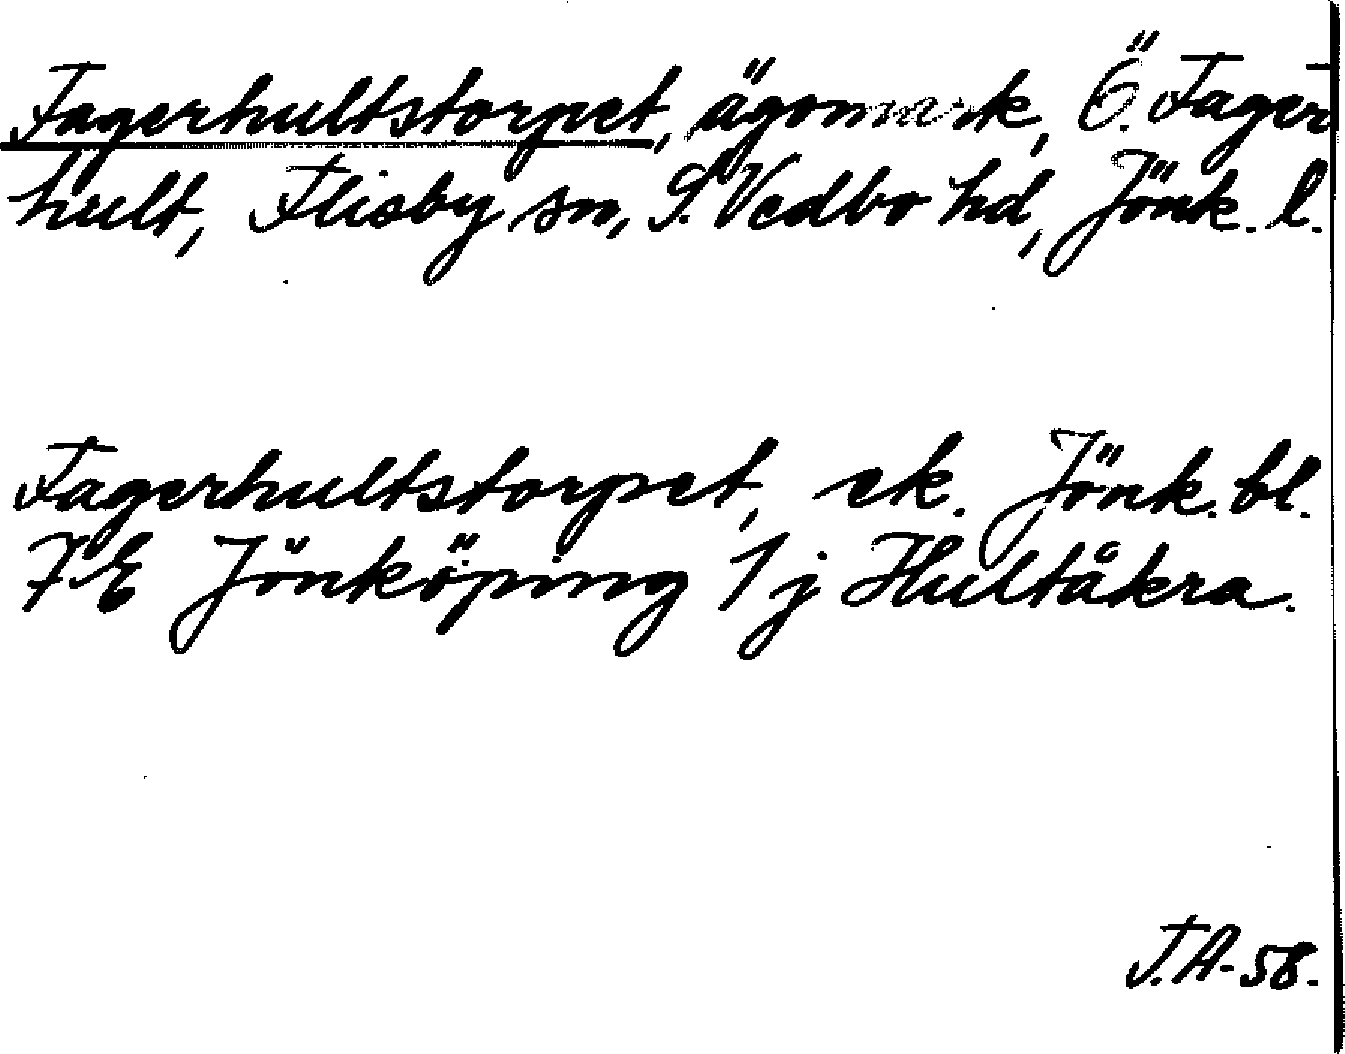 Fagerhultstorpet, ägomark, Ö. Fager-
hult, Flisby sn, S. Vedbo hd, Jönk. l.
Fagerhultstorpet, ek. Jönk. bl.
7E Jönköping 1j Hultåkra.
J.A-58.